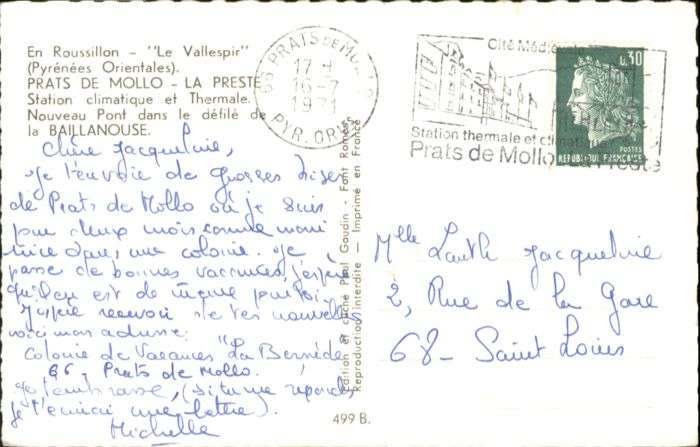 En Roussillon - "Le Vallespir"
(Pyrénées Orientales).
PRATS DE MOLLO - LA PRESTE
Station climatique et Thermale.
Nouveau Pont dans le défilé de
la BAILLANOUSE.
66 PRATS DE MOLLO
17 H
16-7
1971
PYR. OR.
Cité Médiévale
Station thermale et climatique
Prats de Mollo La Preste
0,30
POSTES
REPUBLIQUE FRANÇAISE
Chère Jacqueline,
Je t'envoie de grosses bises
de Prats de Mollo où je suis
pour deux mois comme moni
trice dans une colonie. Je
passe de bonnes vacances, j'espère
qu'il en est de même pour toi.
J'espère recevoir de tes nouvelles
voici mon adresse:
Colonie de Vacances "La Bernède
66 - Prats de Mollo.
Je t'embrasse, (si tu me réponds
je t'enverrai une lettre).
Michelle
Edition et cliché Paul Gaudin - Font Romeu
Reproduction interdite - Imprimé en France
499 B.
Mlle Jacqueline
2, Rue de la Gare
68 - Saint Louis